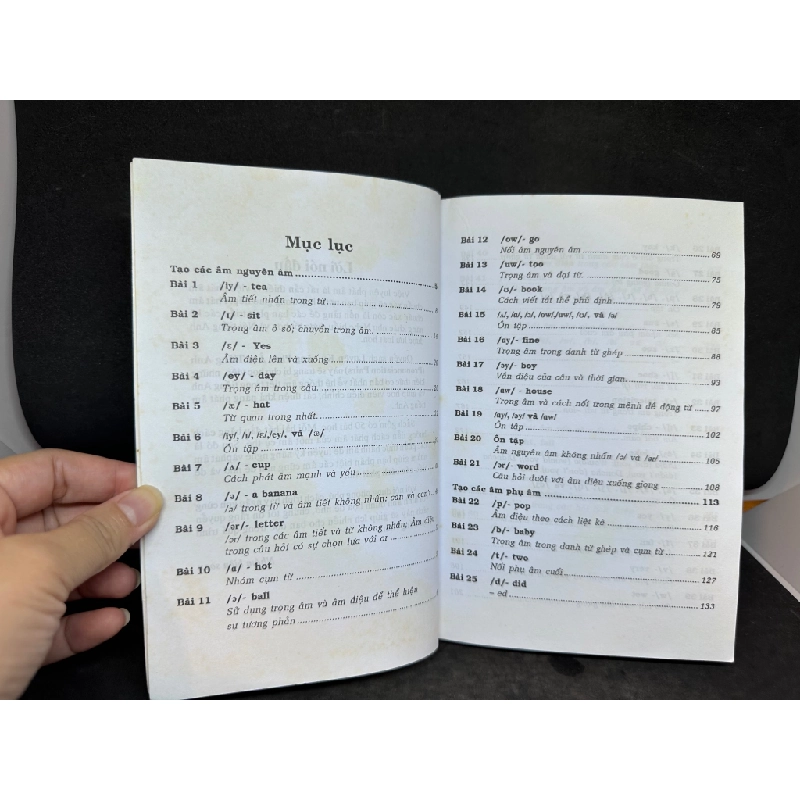 Mục lục
Tạo các âm nguyên âm
Bài 1 /iy/ - tea
Âm tiết nhấn trong từ
Bài 2 /ɪ/ - sit
Trọng âm ở số; chuyển trọng âm
Bài 3 /ɛ/ - Yes
Âm điệu lên và xuống
Bài 4 /ey/ - day
Trọng âm trong câu
Bài 5 /æ/ - hat
Từ quan trong nhất
Bài 6 và /æ/
Ôn tập
Bài 7 /ʌ/ - cup
Cách phát âm mạnh và yếu
Bài 8 /ə/ - a banana
/ə/ trong từ và âm tiết không nhấn; can và can't
Bài 9 /ər/- letter
/ər/ trong các âm tiết và từ không nhấn; Âm điệu
trong câu hỏi có sự chọn lực với or
Bài 10 /ɑ/ - hot
Nhóm cụm từ
Bài 11 /ɔ/- ball
Sử dụng trọng âm và âm điệu để thể hiện
sự tương phản
Bài 12 /ow/- go
Nối âm nguyên âm 69
Bài 13 /uw/- too
Trọng âm và đại từ 75
Bài 14 /ʊ/- book
Cách viết tắt thể phủ định 79
Bài 15 và /ɔ/
Ôn tập 85
Bài 16 /ay/- fine
Trọng âm trong danh từ ghép 88
Bài 17 /ɔy/ boy
Vần điệu của câu và thời gian 93
Bài 18 /aw/ - house
Trọng âm và cách nối trong mệnh đề động từ 97
Bài 19 /ay/, /ɔy/ và /aw/
Ôn tập 102
Bài 20 Ôn tập
Âm nguyên âm không nhấn /ə/ và /ər/ 105
Bài 21 /ər/ word
Câu hỏi đuôi với âm điệu xuống giọng 108
Tạo các âm phụ âm 113
Bài 22 /p/- pop
Âm điệu theo cách liệt kê 116
Bài 23 /b/- baby
Trọng âm trong danh từ ghép và cụm từ 121
Bài 24 /t/- two
Nối phụ âm cuối 127
Bài 25 /d/- did
- ed 133